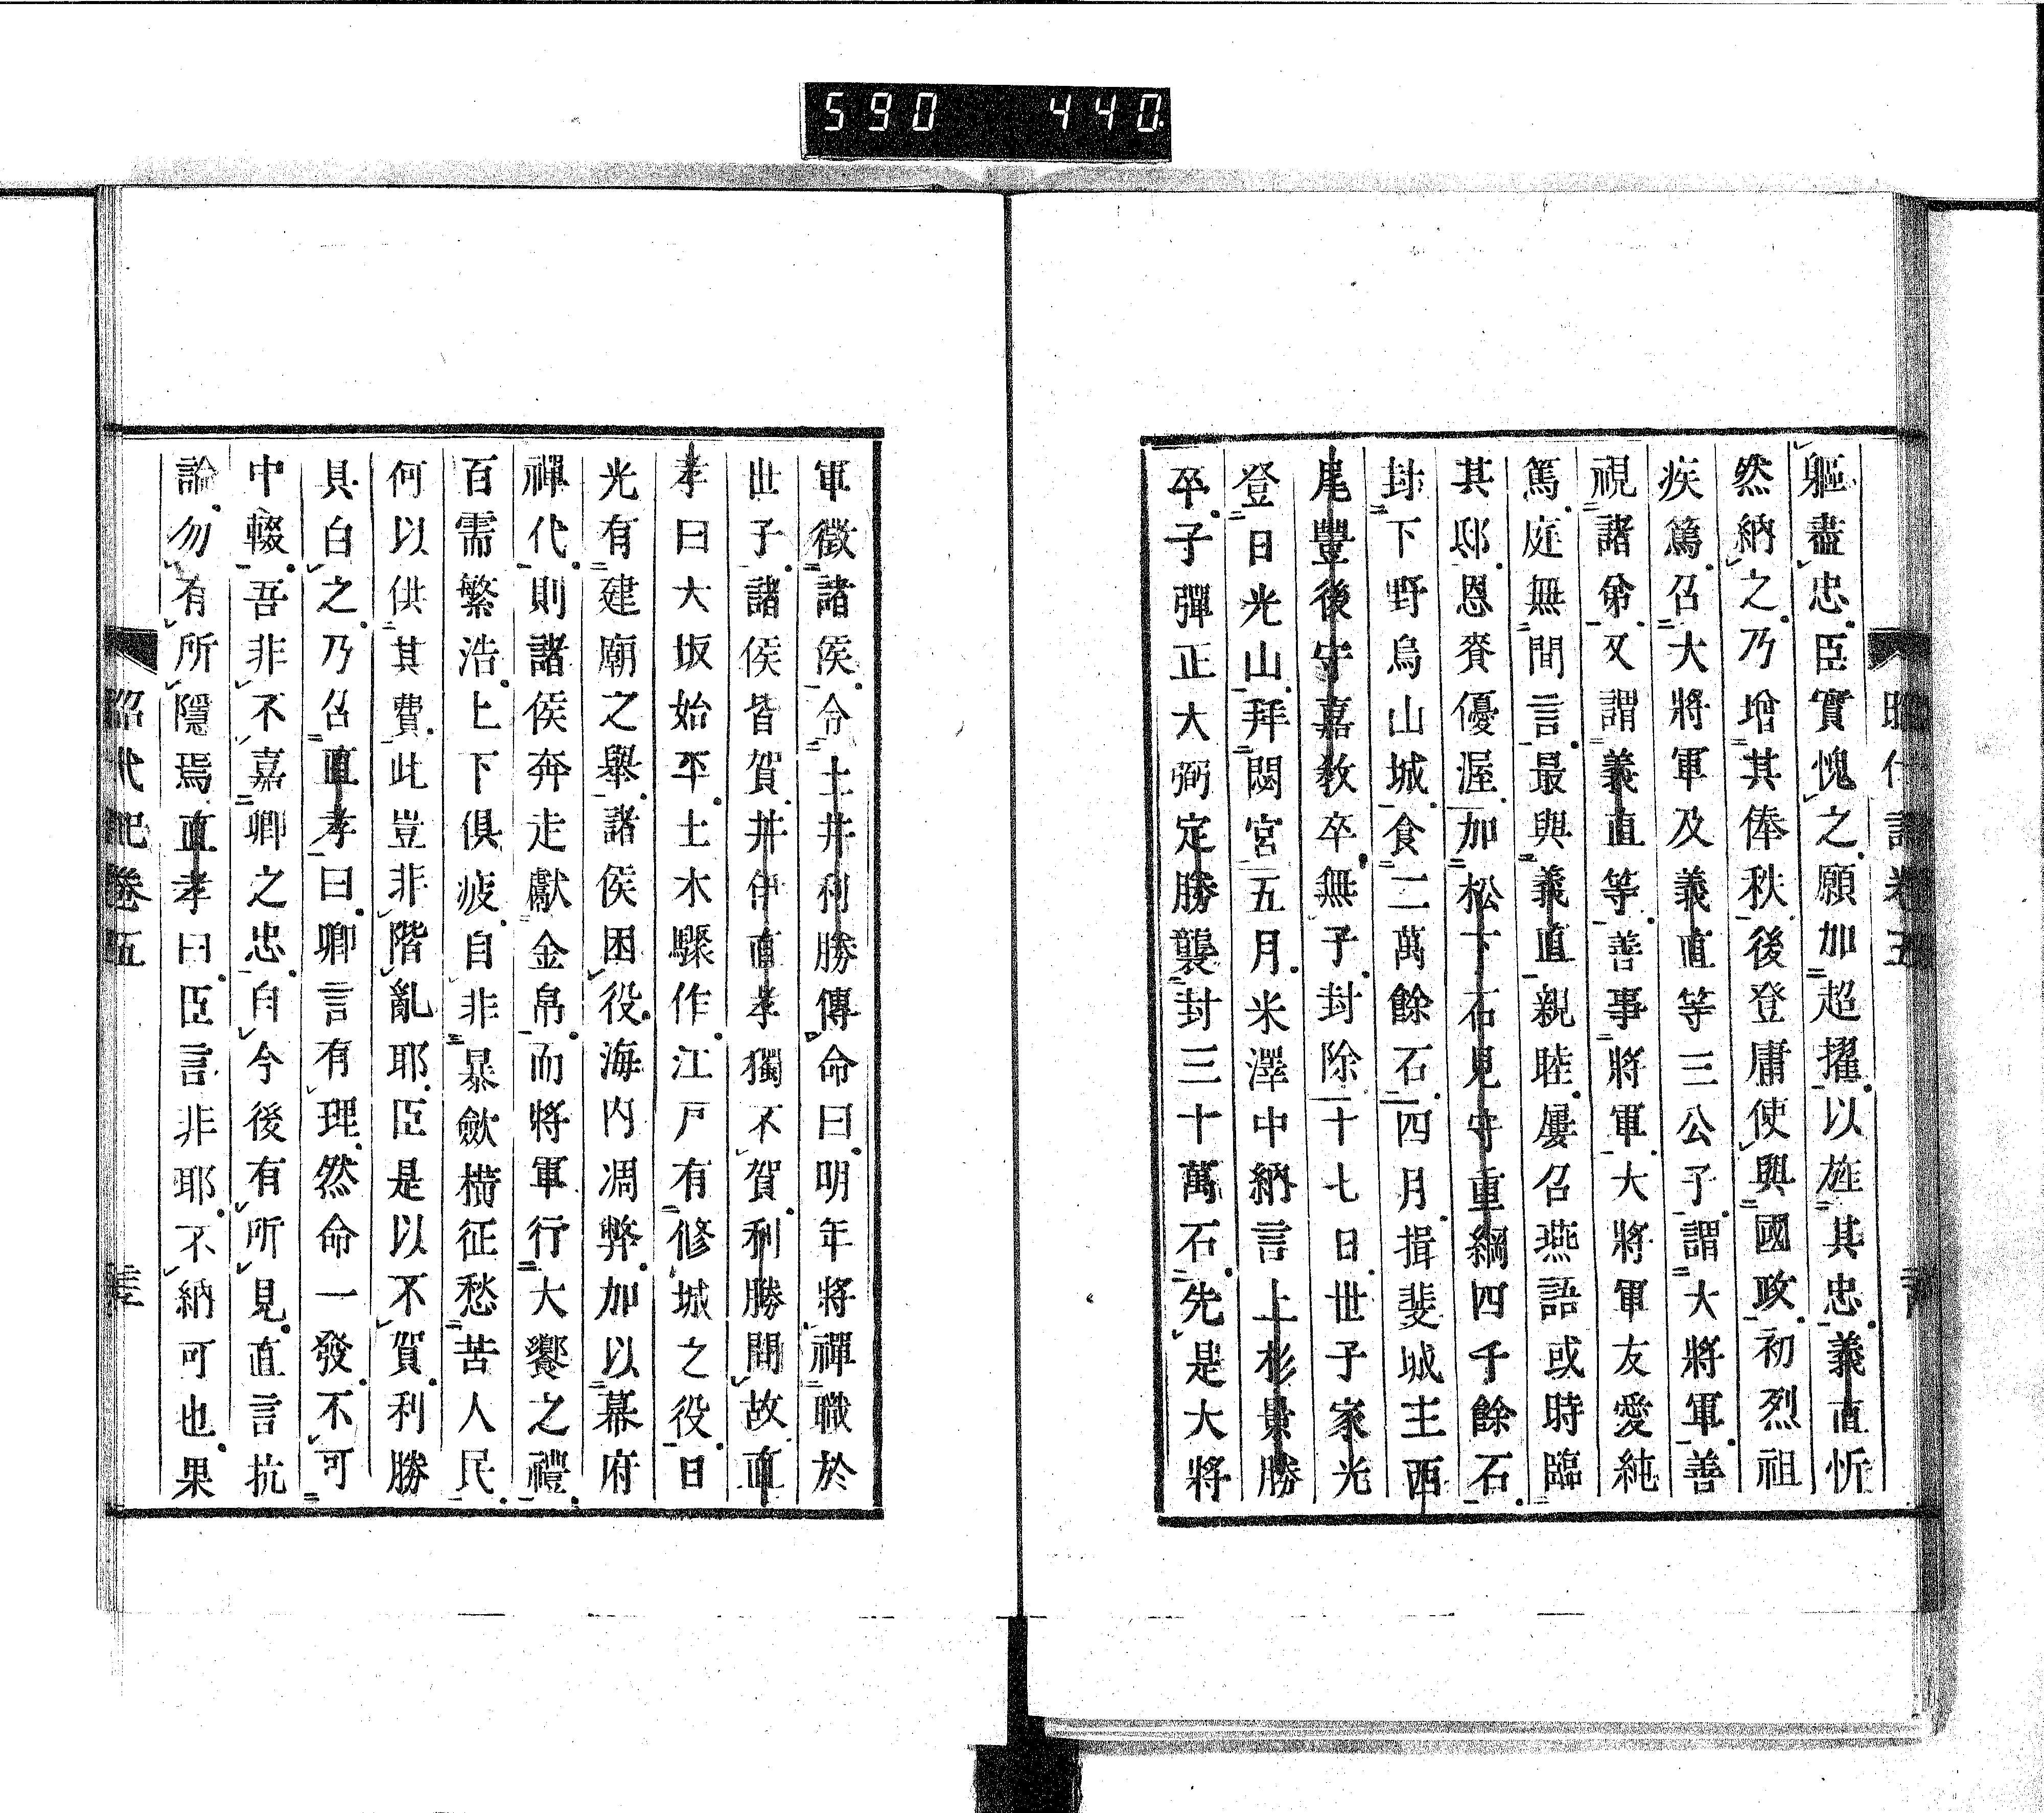 590 440
昭代記卷五
軀盡忠臣實愧之願加超擢以旌其忠義直忻
然納之乃增其俸秩後登庸使與國政初烈祖
疾篤召大將軍及義直等三公子謂大將軍善
視諸弟又謂義直等善事將軍大將軍友愛純
篤庭無間言最與義直親睦屢召燕語或時臨
其邸恩賚優渥加松下石見守重綱四千餘石
封下野烏山城食二萬餘石四月揖斐城主西
尾豐後守嘉教卒無子封除十七日世子家光
登日光山拜閟宮五月米澤中納言上杉景勝
卒子彈正大弼定勝襲封三十萬石先是大將
軍徵諸侯令土井利勝傳命曰明年將禪職於
世子諸侯皆賀井伊直孝獨不賀利勝問故直
孝曰大坂始平土木驟作江戶有修城之役日
光有建廟之舉諸侯困役海內凋弊加以幕府
禪代則諸侯奔走獻金帛而將軍行大饗之禮
百需繁浩上下俱疲自非暴斂橫征愁苦人民
何以供其費此豈非階亂耶臣是以不賀利勝
具白之乃召直孝曰卿言有理然命一發不可
中輟吾非不嘉卿之忠自今後有所見直言抗
論勿有所隱焉直孝曰臣言非耶不納可也果
昭代記卷五